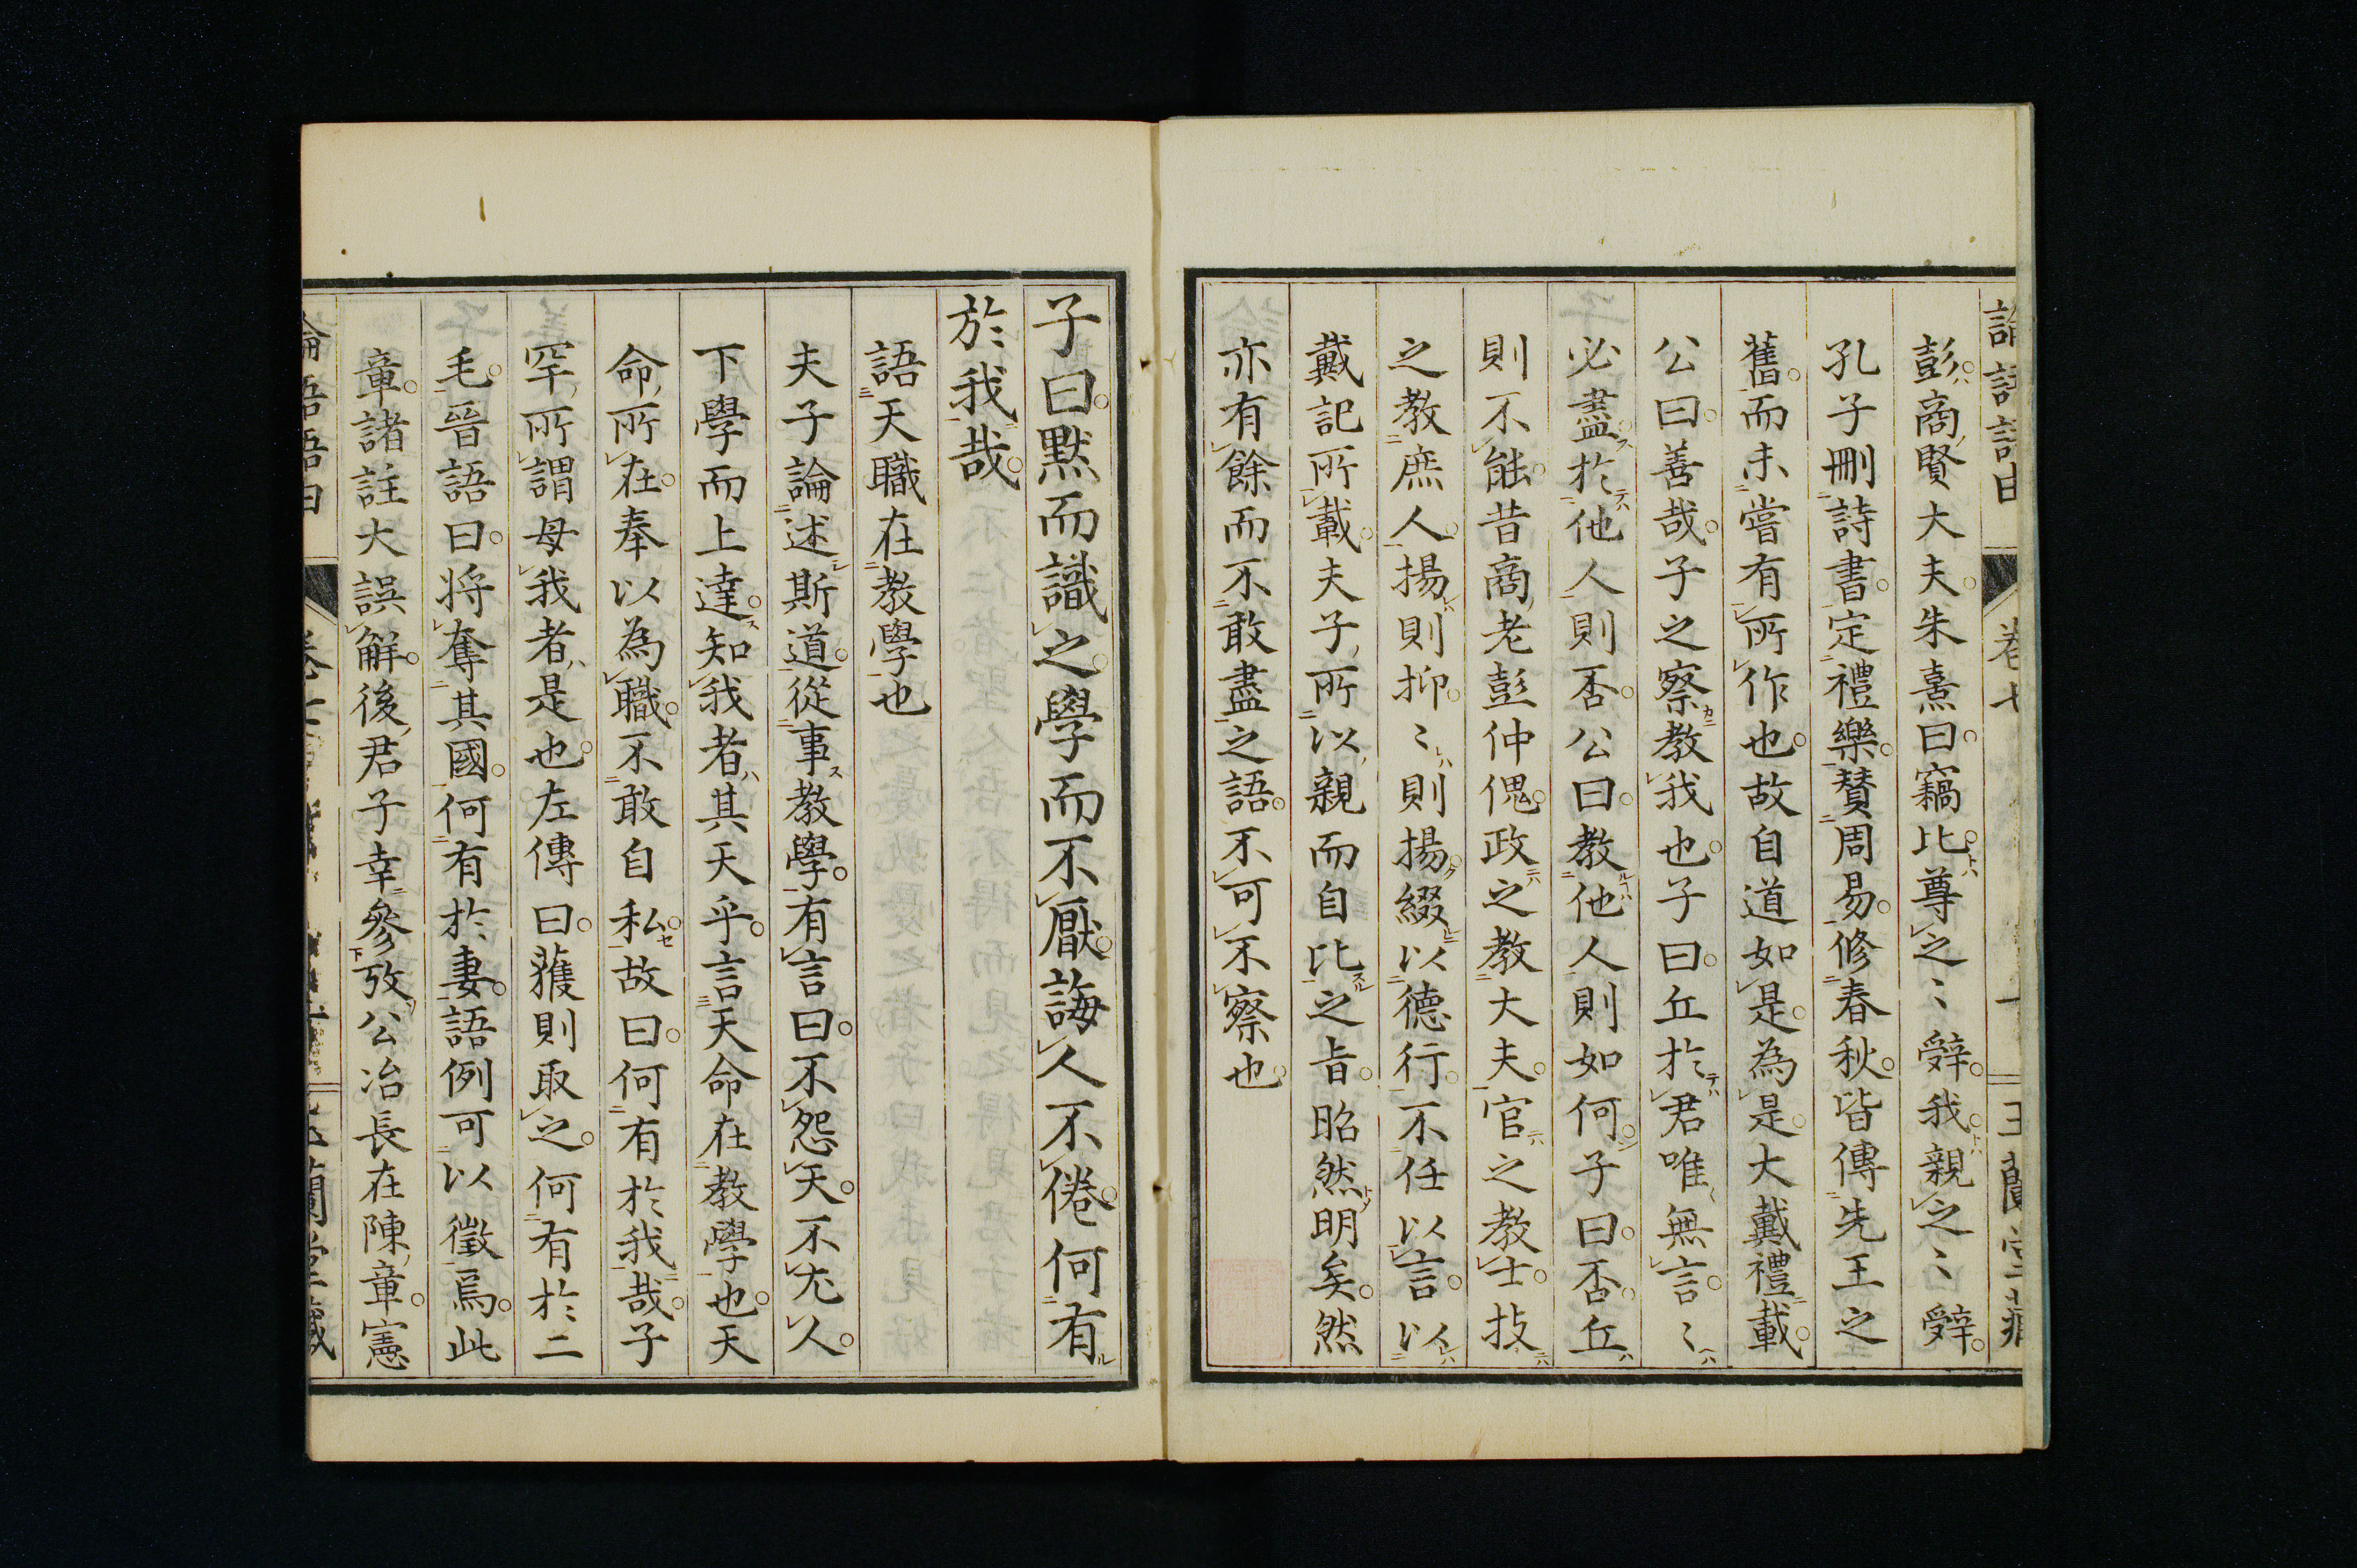 彭商賢大夫朱熹曰竊比尊之〻辤我親之〻辤
孔子刪詩書定禮樂賛周易修春秋皆傳先王之
舊而未嘗有所作也故自道如是為是大戴禮載
公曰善哉子之察教我也子曰丘於君唯無言〻
必盡於他人則否公曰教他人則如何子曰否丘
則不能昔商老彭仲傀政之教大夫官之教士技
之教庶人揚則抑〻則揚綴以德行不任以言以
戴記所載夫子所以親而自比之旨昭然明矣然
亦有餘而不敢盡之語不可不察也
子曰默而識之學而不厭誨人不倦何有
於我哉
語天職在教學也
夫子論述斯道從事教學有言曰不怨天不尤人
下學而上達知我者其天乎言天命在教學也天
命所在奉以為職不敢自私故曰何有於我哉子
罕所謂毋我者是也左傳曰獲則取之何有於二
毛晉語曰将奪其國何有於妻語例可以徵焉此
章諸註大誤解後君子幸參攷公冶長在陳章憲